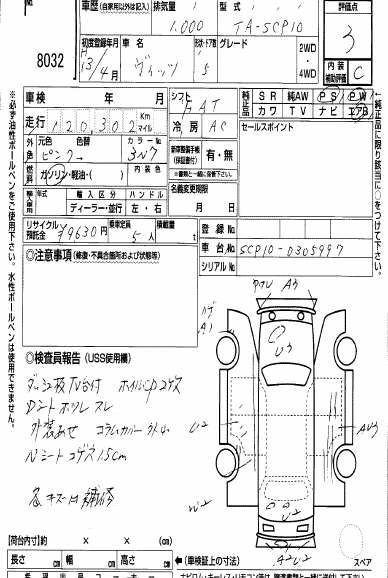 車歴 (自家用以外は記入) 排気量 1.000 型式 TA-SCP10 評価点 3
8032
初度登録年月 車名 形状・ドア数 グレード 2WD 4WD
13/4月 ヴィッツ 5
内装補助評価 C
車検 年 月 シフト FAT 純正品 SR 純AW PS PW
カワ TV ナビ エアB
走行 120,302 Km マイル 冷房 AC セールスポイント
外色 元色 色替 カラーNo
ピンク 3N7
新車整備手帳 (保証書付) 有・無
※書類と一緒に営業下さい。
燃料 ガソリン・軽油・( ) 内装色
名義変更期限 月 日
輸入車用 年式 輸入区分 ハンドル
ディーラー・並行 左・右
リサイクル預託金 ¥9630円 乗車定員 5人 積載量 t
登録No
車台No SCP10-0305997
シリアルNo
◎注意事項 (修復・不具合箇所および状態等)
マルU A3
A1
U3
◎検査員報告 (USS使用欄)
ダッシュ板TV台付 ホイルCPコゲス
Dシートホツレ スレ
外装あせ コラムカバー外ム
Nシートコゲス1.5cm
各キズ凹補修
U2
AU3
U2
U2
A2U2
【荷台内寸】 × × (㎝)
長さ ㎝ 幅 ㎝ 高さ ㎝ ←(車検証上の寸法)
スペア
※必ず油性ボールペンをご使用下さい。水性ボールペンは使用できません。
※純正品に限り該当に○をつけて下さい。